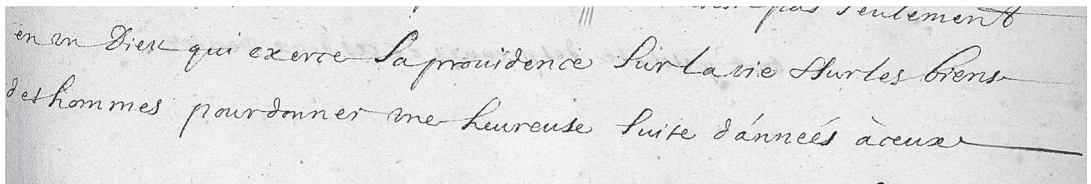 pas seulement
en vn Dieu qui exerce sa prouidence sur la vie & sur les biens
des hommes pour donner vne heureuse suite d'années à ceux